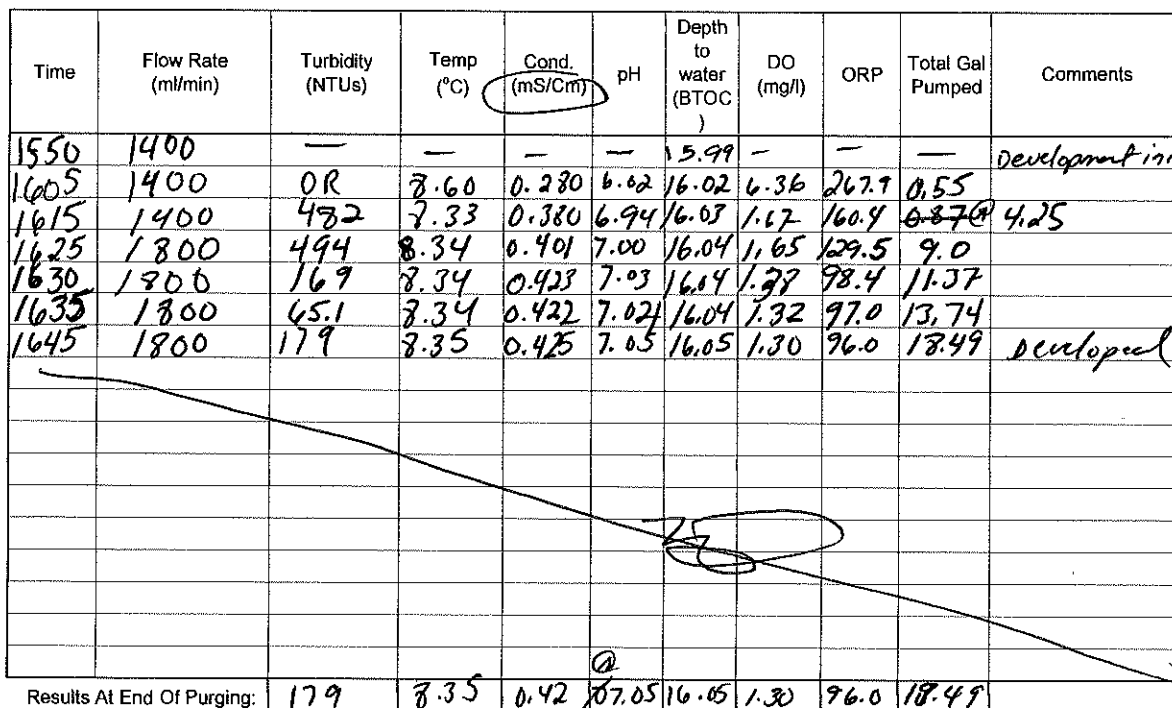 Time Flow Rate (ml/min) Turbidity (NTUs) Temp (°C) Cond. (mS/Cm) pH Depth to water (BTOC) DO (mg/l) ORP Total Gal Pumped Comments
1550 1400 — — — — 15.99 — — — Development in
1605 1400 OR 8.60 0.280 6.62 16.02 6.36 267.9 0.55
1615 1400 482 8.33 0.380 6.94 16.03 1.67 160.4 0.87 4.25
1625 1800 494 8.34 0.401 7.00 16.04 1.65 129.5 9.0
1630 1800 169 8.34 0.423 7.03 16.04 98.4 11.37
1635 1800 65.1 8.34 0.422 7.04 16.04 1.32 97.0 13.74
1645 1800 179 8.35 0.425 7.05 16.05 1.30 96.0 18.49 Developed
Results At End Of Purging: 179 8.35 0.42 7.05 16.05 1.30 96.0 18.49